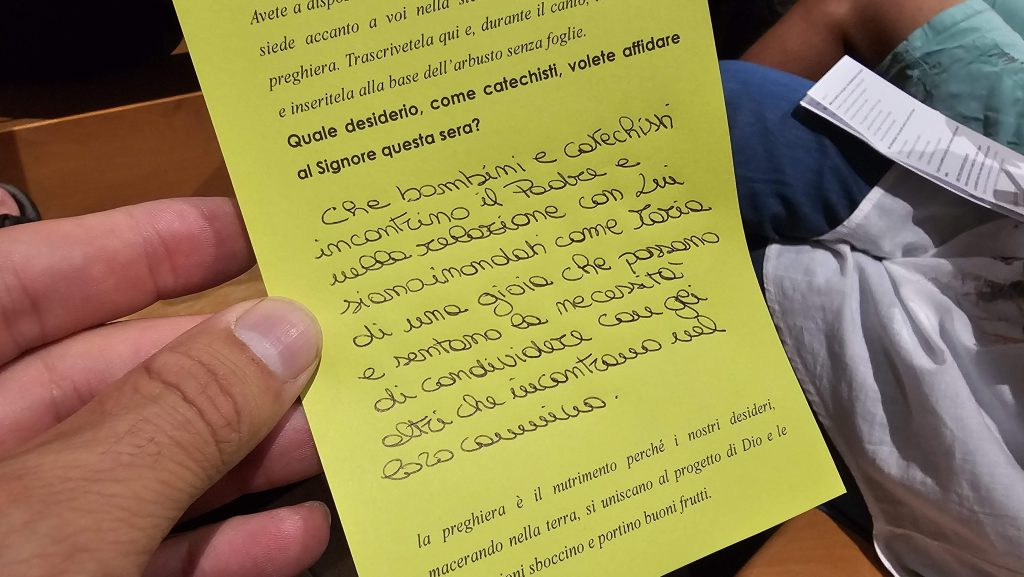 Avete a dispos
siede accanto a voi nella
preghiera. Trascrivetela qui e, durante il canto,
e inseritela alla base dell'arbusto senza foglie.
Quale desiderio, come catechisti, volete affidare
al Signore questa sera?
Che bambini e catechisti
incontrino il Padre e
nella relazione con Lui
siano inondati come Maria
di una gioia che possano
e sentano la necessità
di condividere con gli
altri che incontrano nel
loro cammino.
la preghiera è il nutrimento perché i nostri desideri,
macerando nella terra, si uniscano al progetto di Dio e le
ioni sboccino e portino buoni frutti.